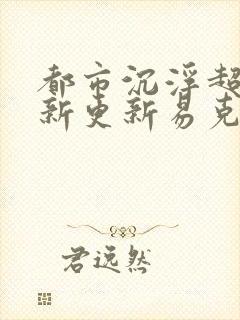 都市沉浮超
新更新易克
君远然